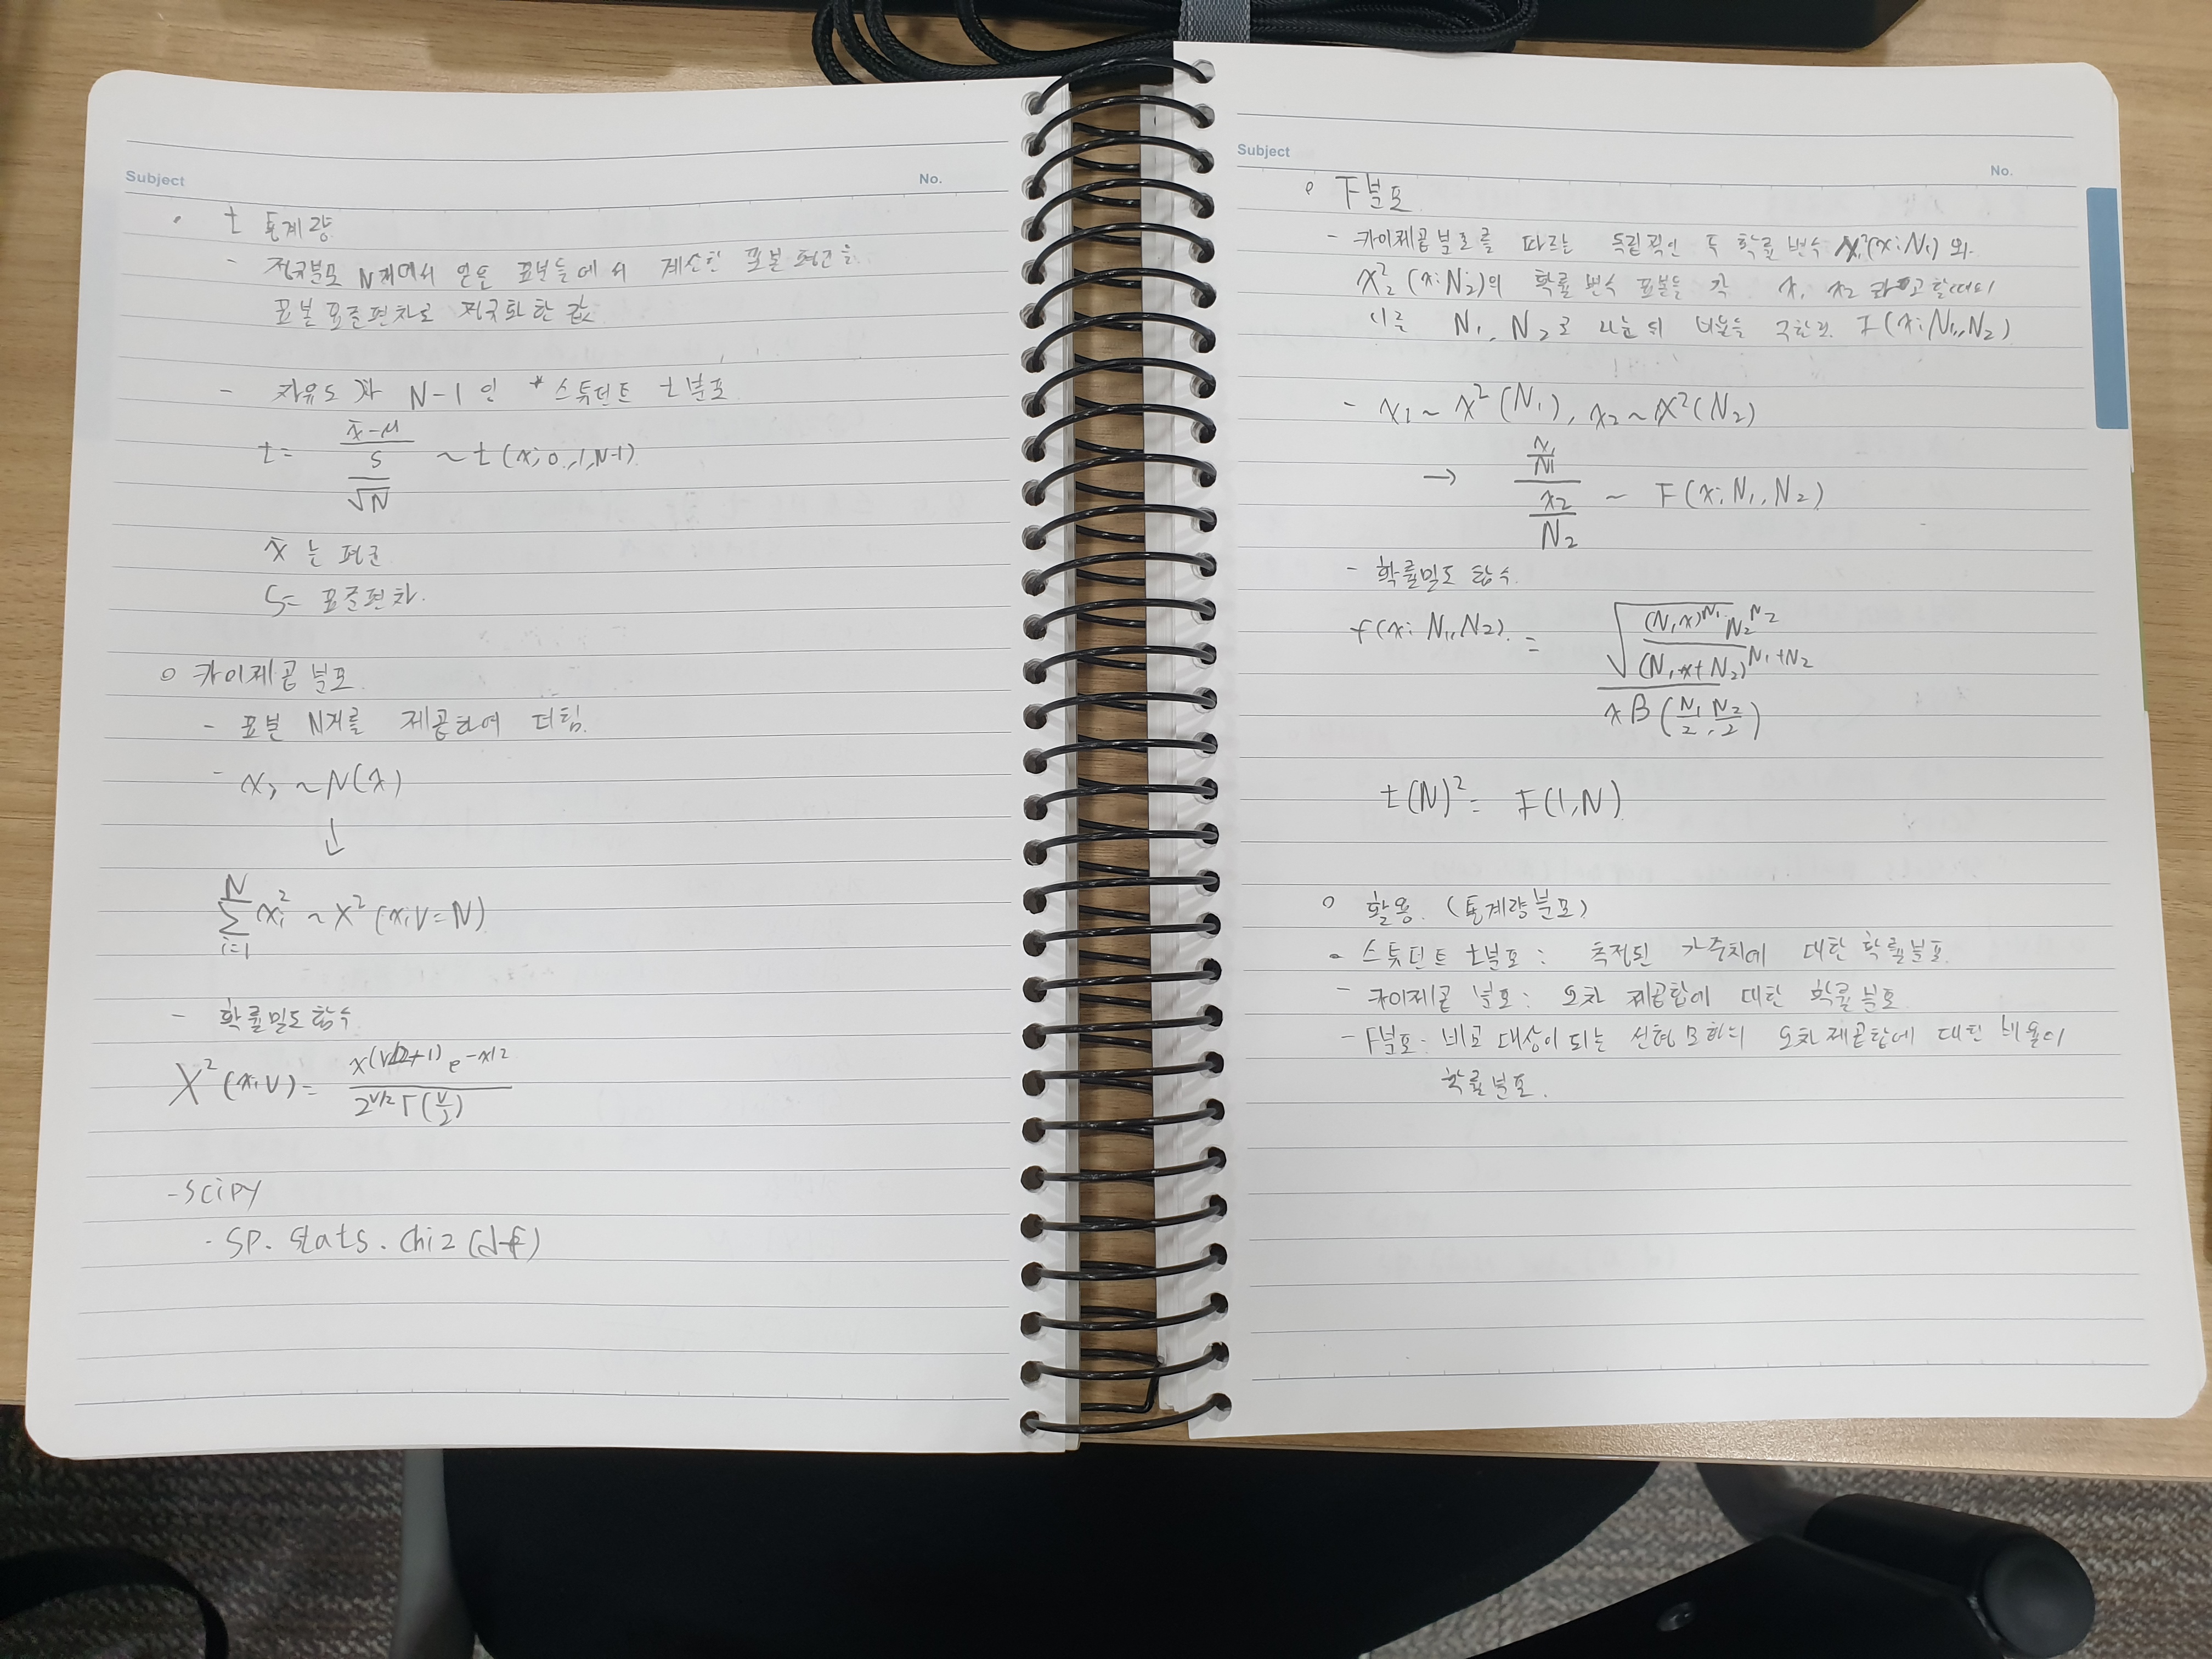 Subject
No.
t 통계량
- 정규분포 N개에서 얻은 표본들에서 계산한 표본평균을
표본표준편차로 정규화한 값
- 자유도가 N-1인 *스튜던트 t분포
t = \frac{\frac{x̄-μ}{s}}{\sqrt{N}} ~ t(x;0,1,N-1)
x̄는 평균
S= 표준편차.
o 카이제곱분포
- 표본 N개를 제곱하여 더함.
- xᵢ ~ N(x)
↓
\sum_{i=1}^{N} xᵢ² ~ X²(x;V=N)
- 확률밀도함수
X²(x;V) = \frac{x^{(V/2+1)} e^{-x/2}}{2^{V/2} Γ(\frac{V}{2})}
- scipy
- SP. stats. chi2(df)
Subject
No.
o F분포
- 카이제곱분포를 따르는 독립적인 두 확률변수 X₁²(x;N₁)와
X₂²(x;N₂)의 확률변수 표본을 각 x₁ x₂라고 할때
이를 N₁, N₂로 나눈 뒤 비율을 구한다. F(x;N₁,N₂)
- x₁ ~ X²(N₁), x₂ ~ X²(N₂)
→ \frac{\frac{x₁}{N₁}}{\frac{x₂}{N₂}} ~ F(x;N₁,N₂)
- 확률밀도함수.
f(x;N₁,N₂) = \frac{\sqrt{\frac{(N₁x)^{N₁} N₂^{N₂}}{(N₁x+N₂)^{N₁+N₂}}}}{xB(\frac{N₁}{2},\frac{N₂}{2})}
t(N)² = F(1,N)
o 활용. (통계량분포)
- 스튜던트 t분포 : 측정된 가중치에 대한 확률분포.
- 카이제곱 분포: 오차 제곱합에 대한 확률분포
- F분포: 비교 대상이 되는 선형모형의 오차제곱합에 대한 비율의
확률분포.